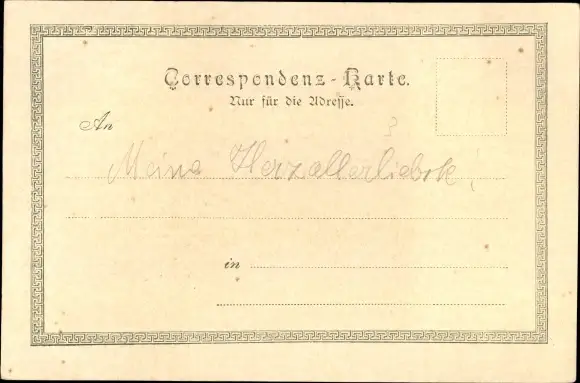 Correspondenz-Karte.
Nur für die Adresse.
An
?
Meine Herzallerliebste!
in